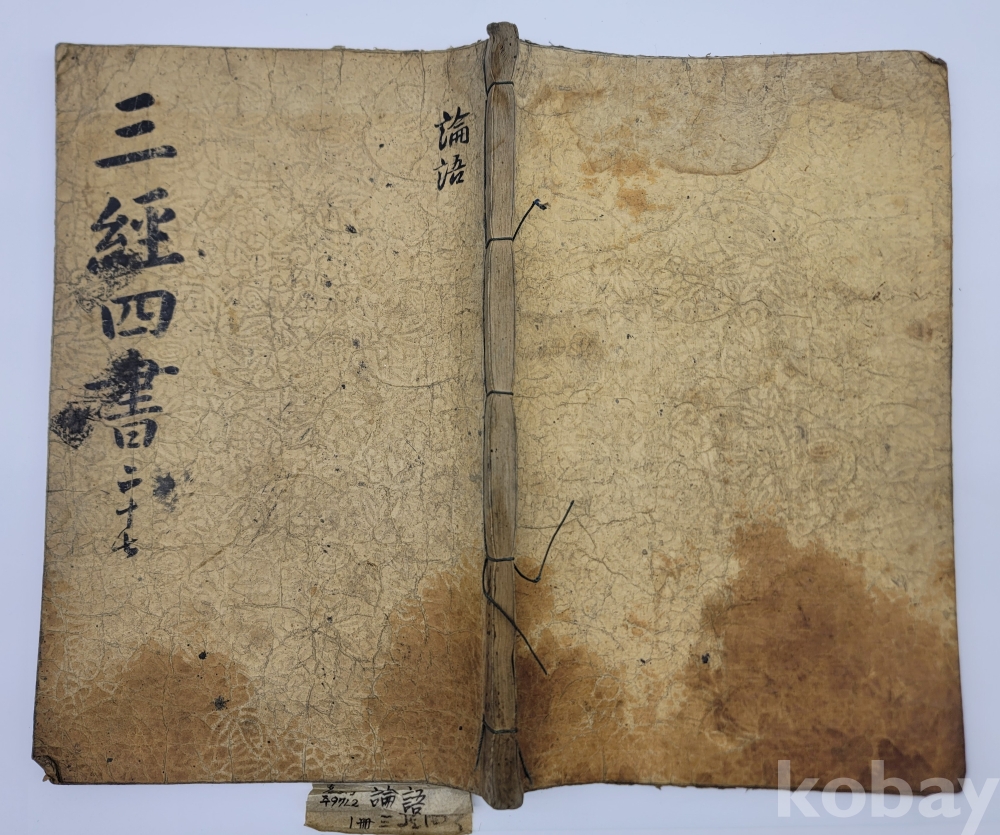 三經四書二十七
論語
論語
1冊 三
kobay